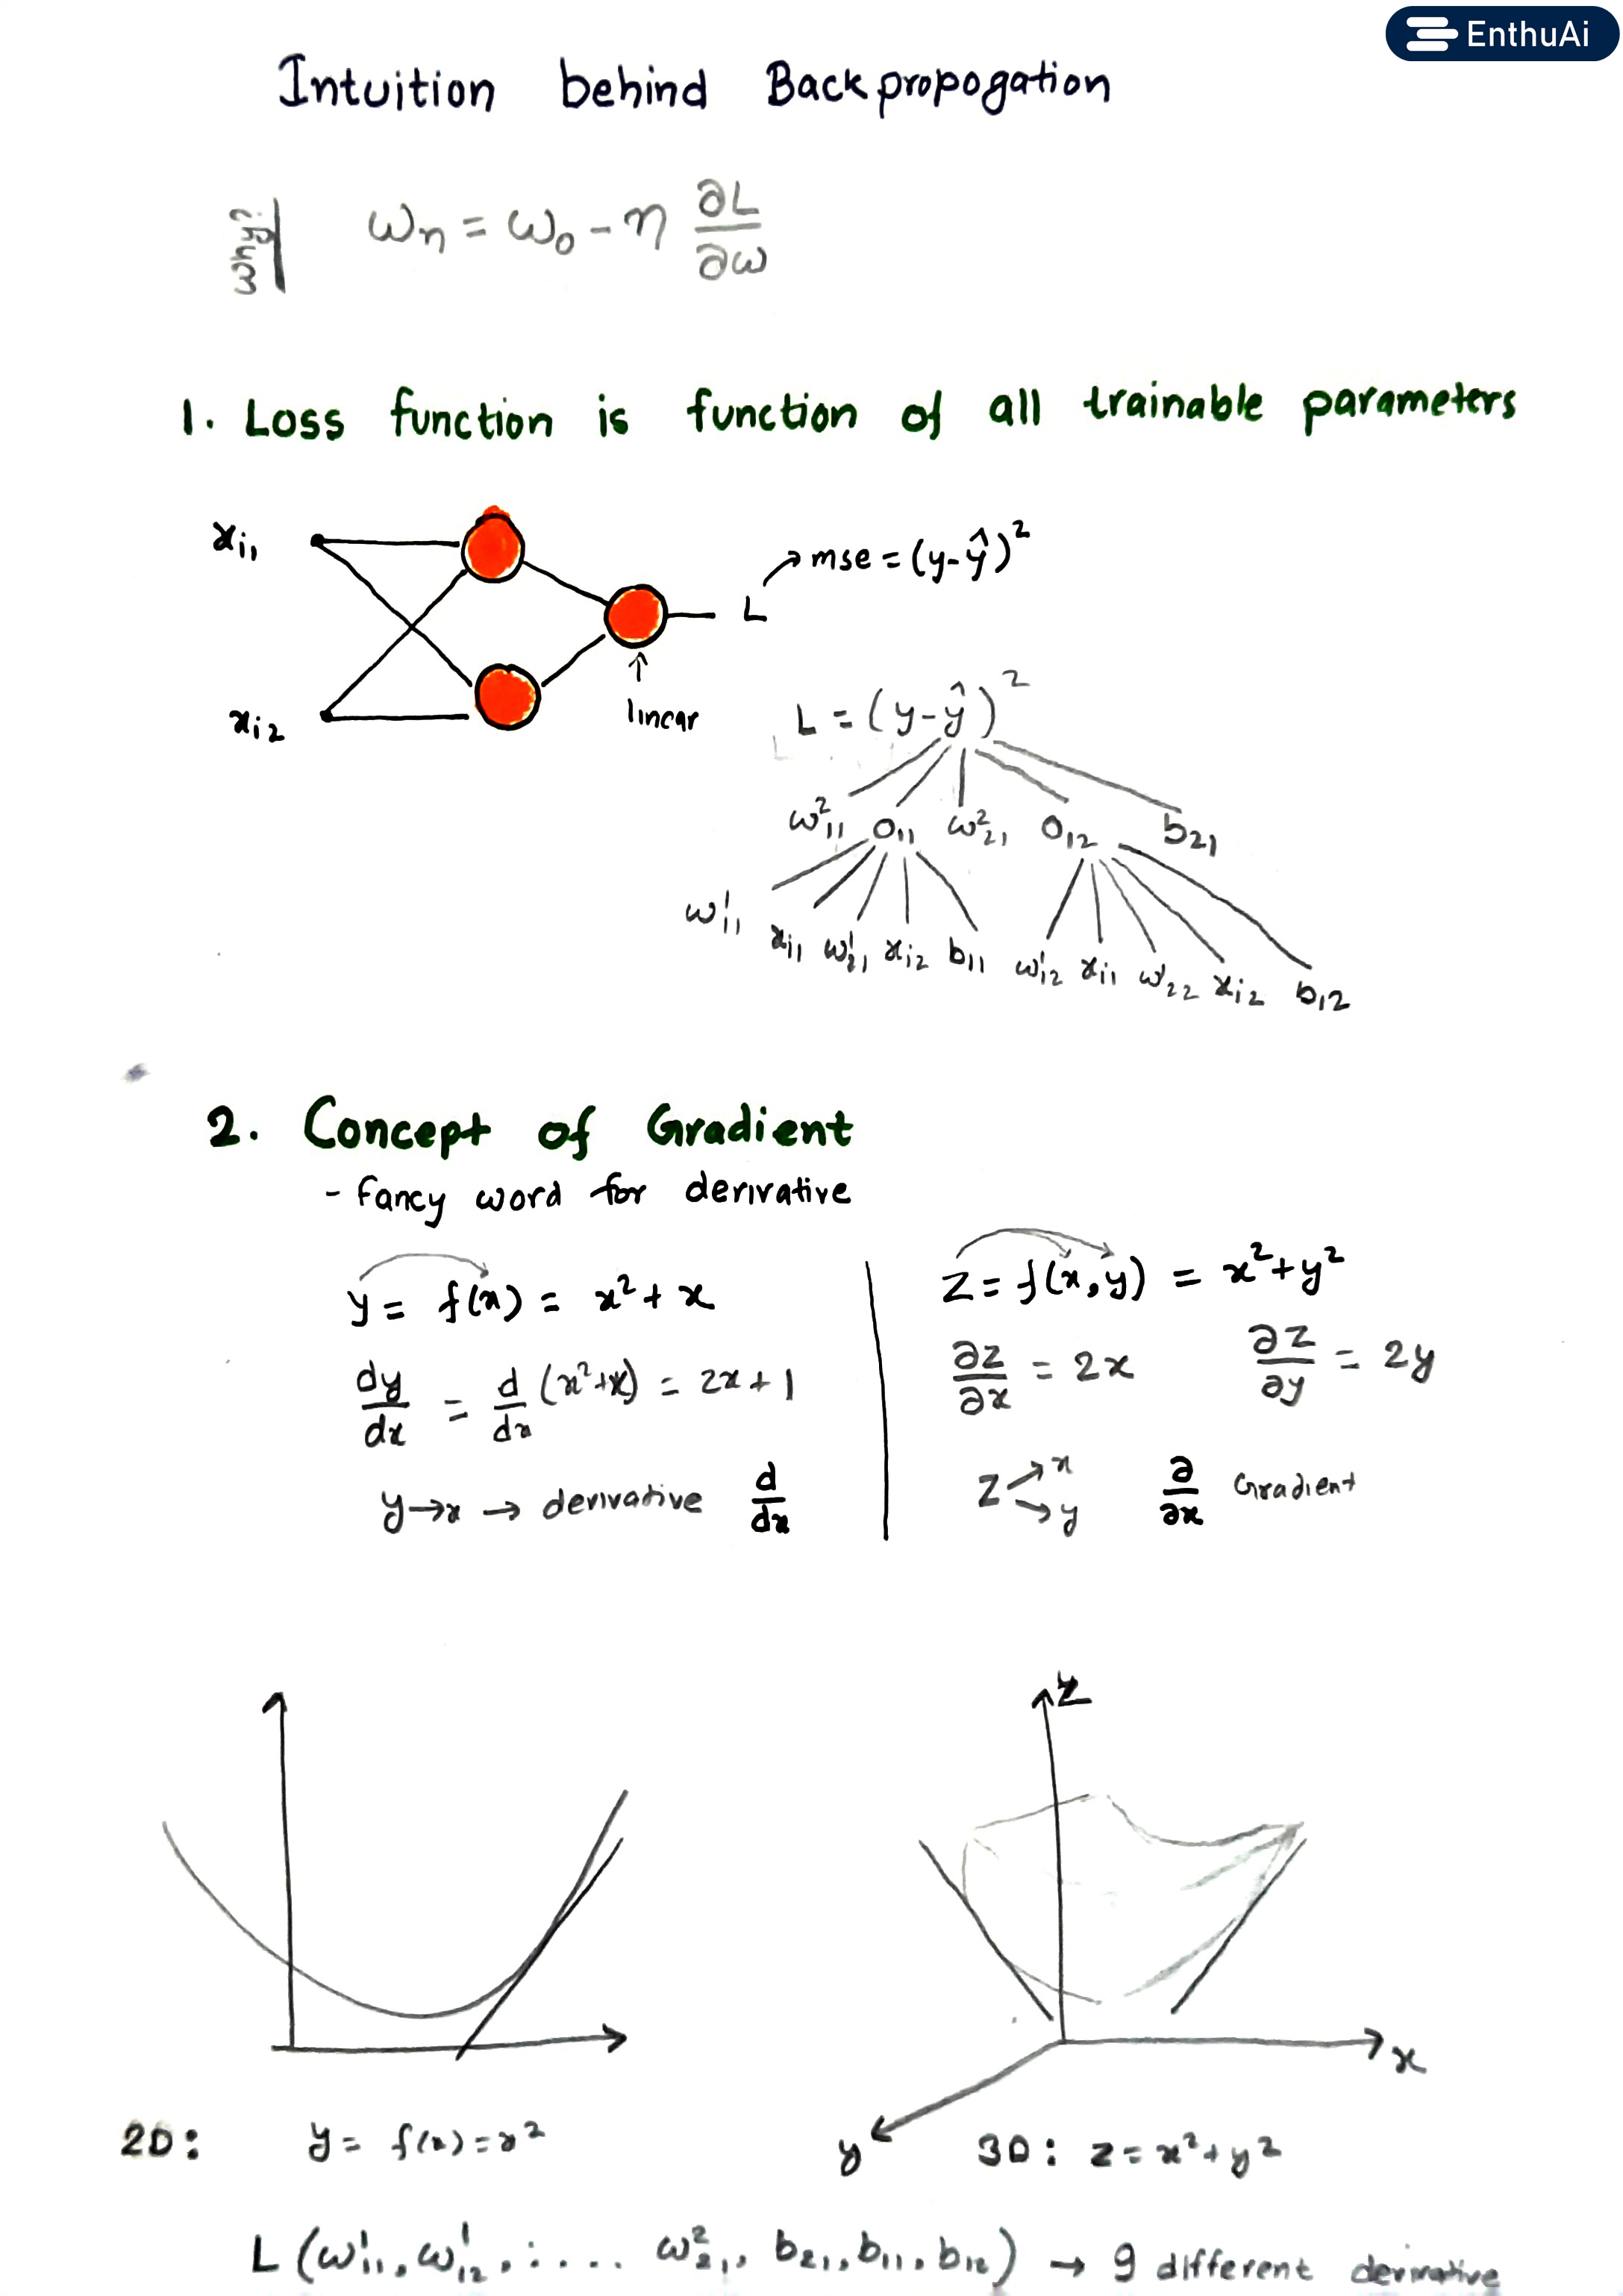 EnthuAi
Intuition behind Backpropogation
why? ωn = ω0 - η ∂L/∂ω
1. Loss function is function of all trainable parameters
xi1
mse = (y-ŷ)²
L
xi2
linear
L = (y-ŷ)²
ω²11 O11 ω²21 O12 b21
ω¹11 xi1 ω¹21 xi2 b11 ω¹12 xi1 ω¹22 xi2 b12
2. Concept of Gradient
- fancy word for derivative
y = f(x) = x² + x
dy/dx = d/dx (x²+x) = 2x+1
y→x → derivative d/dx
z = f(x,y) = x²+y²
∂z/∂x = 2x ∂z/∂y = 2y
z x y ∂/∂x Gradient
z
x
y
2D: y = f(x) = x²
3D: z = x²+y²
L (ω¹11, ω¹12, :.... ω²21, b21, b11, b12) → 9 different derivative